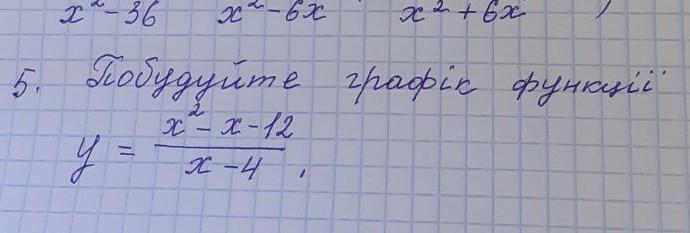 x² - 36 x² - 6x x² + 6x ,
5. Побудуйте графік функції
y = (x² - x - 12)/(x - 4) .